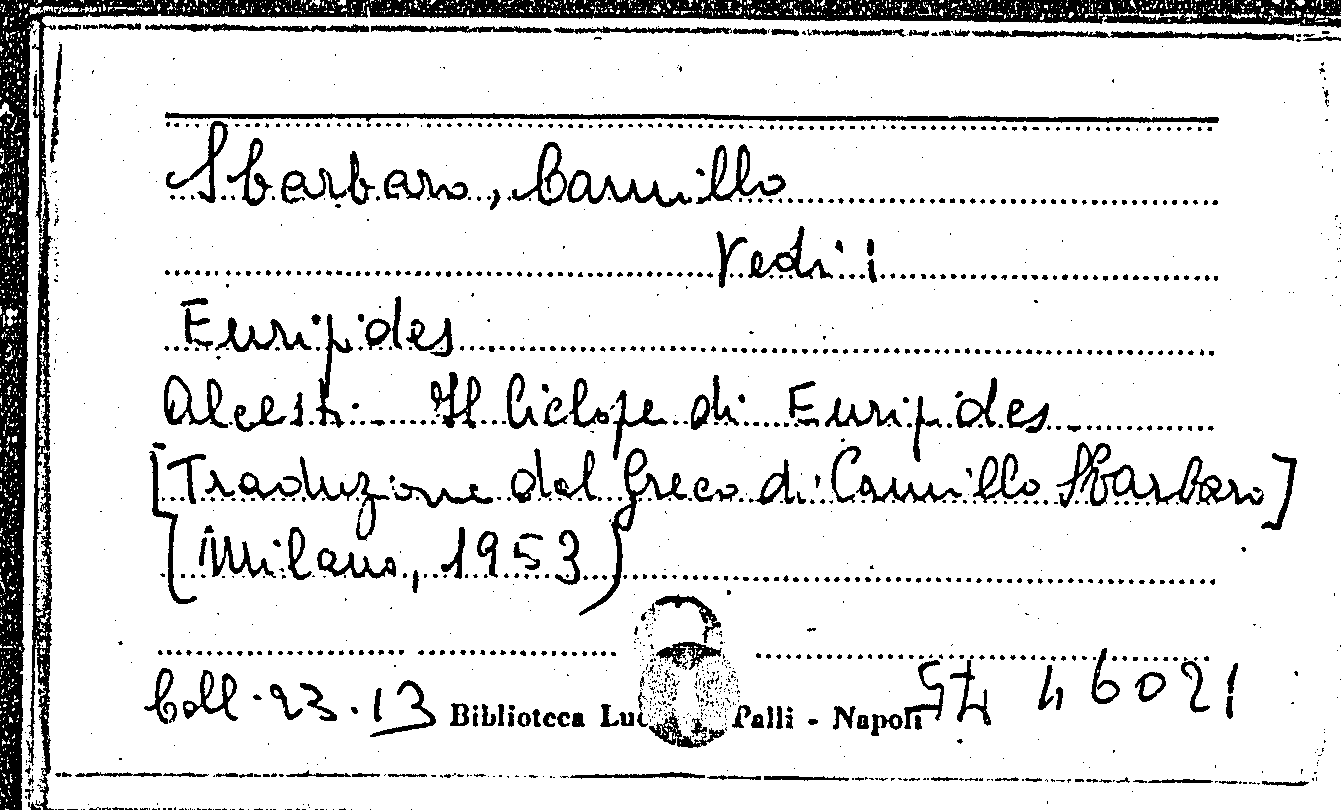 Sbarbaro, Camillo
Vedi:
Euripides
Alcesti - Il Ciclope di Euripides -
[Traduzione dal Greco di Camillo Sbarbaro]
(Milano, 1953)
Coll. 23.13 Biblioteca Palli - Napoli